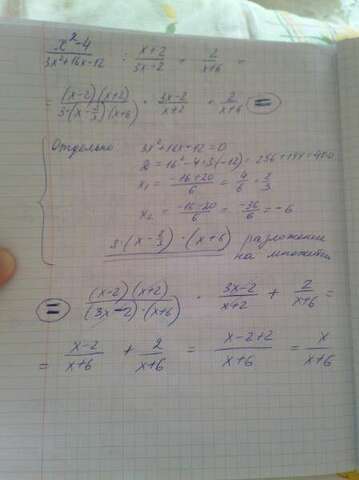 (x²-4)/(3x²+16x-12) : (x+2)/(3x-2) + 2/(x+6) =
= ((x-2)(x+2))/(3·(x-2/3)(x+6)) · (3x-2)/(x+2) + 2/(x+6) =
Отдельно 3x²+16x-12=0
D=16²-4·3·(-12)=256+144=400
x₁ = (-16+20)/6 = 4/6 = 2/3
x₂ = (-16-20)/6 = -36/6 = -6
3·(x-2/3)·(x+6) разложение
на множители
= ((x-2)(x+2))/((3x-2)·(x+6)) · (3x-2)/(x+2) + 2/(x+6) =
= (x-2)/(x+6) + 2/(x+6) = (x-2+2)/(x+6) = x/(x+6)